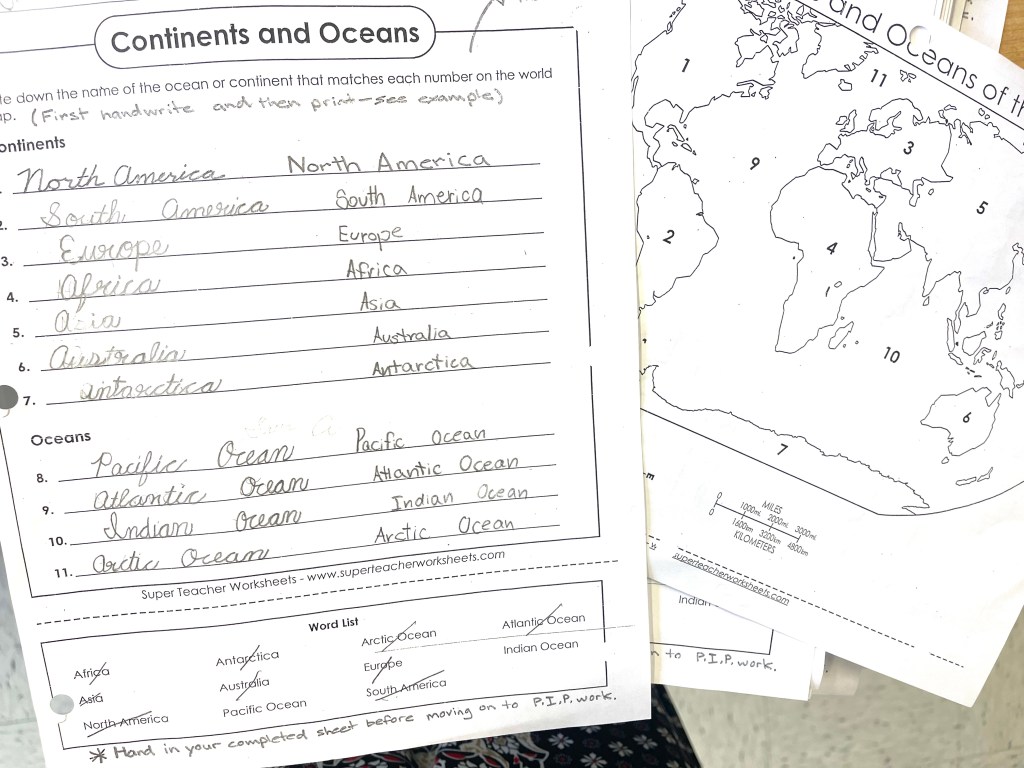 Continents and Oceans
te down the name of the ocean or continent that matches each number on the world
ap. (First handwrite and then print-see example)
ontinents
North America North America
2. South America South America
3. Europe Europe
4. Africa Africa
5. Asia Asia
6. Australia Australia
7. antarctica Antarctica
Oceans
8. Pacific Ocean Pacific Ocean
9. Atlantic Ocean Atlantic Ocean
10. Indian Ocean Indian Ocean
11. Arctic Ocean Arctic Ocean
Super Teacher Worksheets - www.superteacherworksheets.com
Word List
Africa Antarctica Arctic Ocean Atlantic Ocean
Asia Australia Europe Indian Ocean
North America Pacific Ocean South America
* Hand in your completed sheet before moving on to P.I.P. work.
and Oceans of th
1
11
3
9
5
2
4
10
6
7
0 1000mi 2000mi 3000mi
MILES
0 1600km 3200km 4800km
KILOMETERS
superteacherworksheets.com
Indian
n to P.I.P. work.